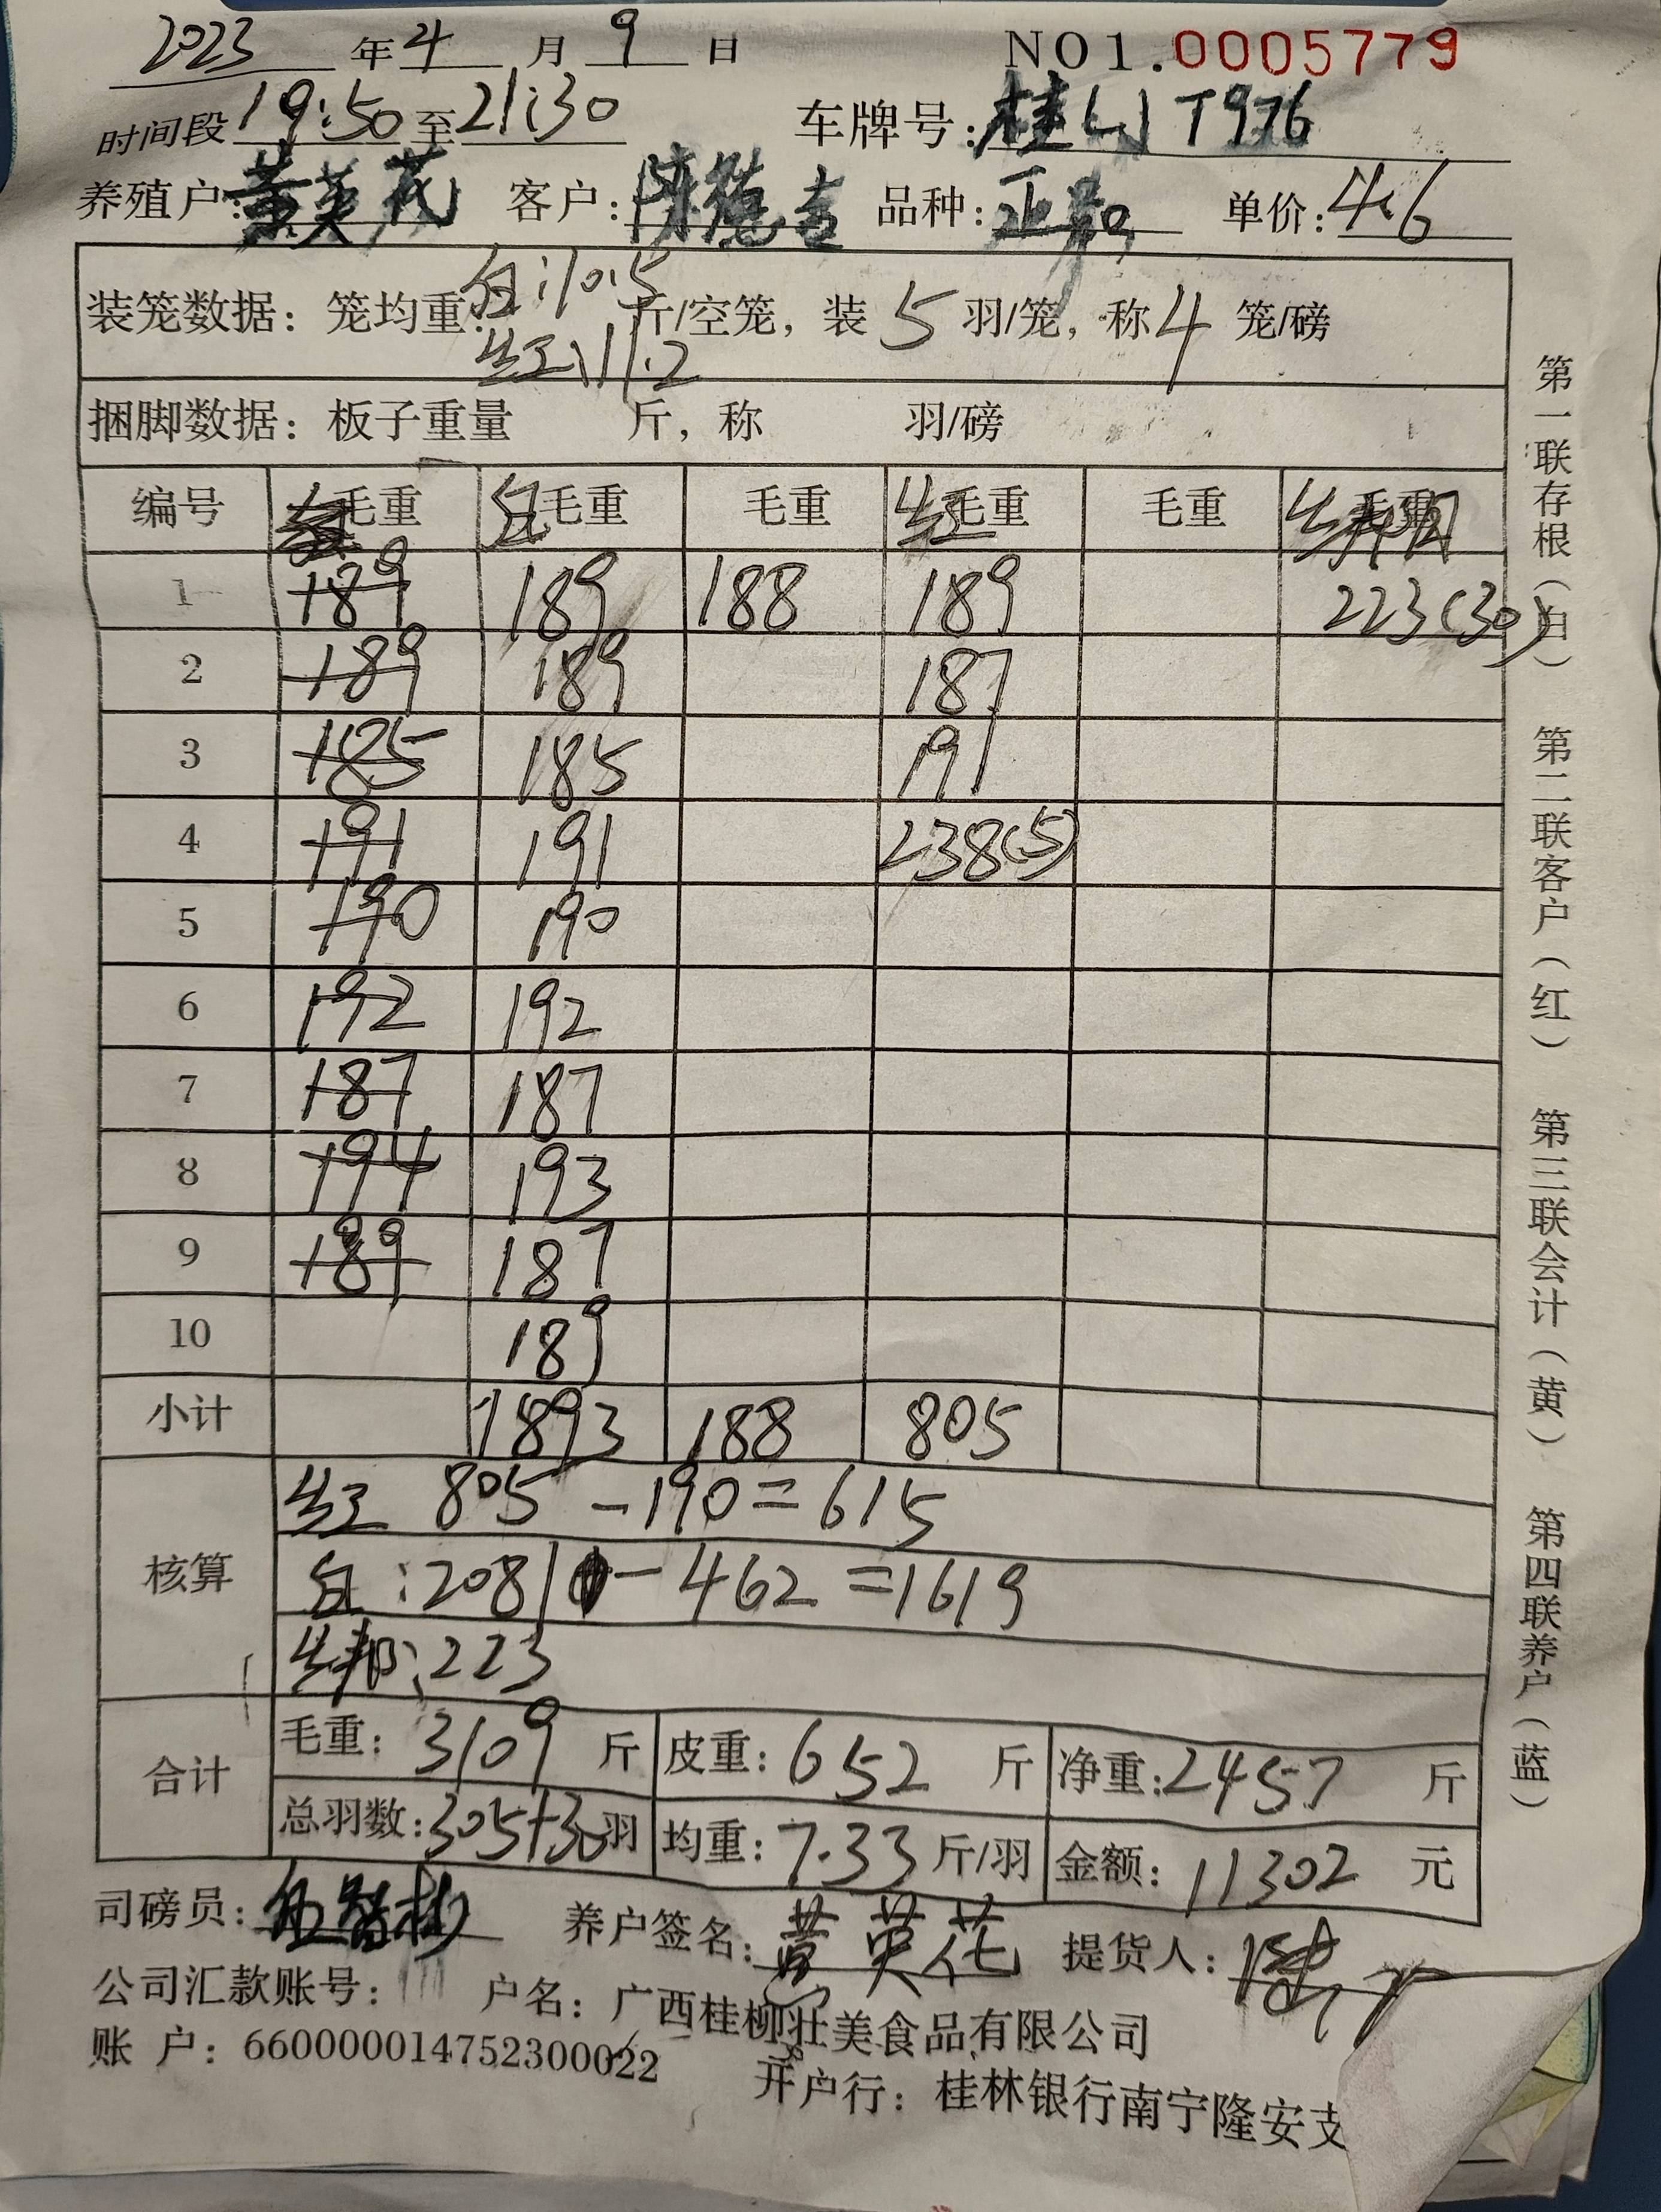 2023 年 4 月 9 日 NO1.0005779
时间段 19:50 至 21:30 车牌号: T976
养殖户: 黄英花 客户: 陈德吉 品种: 正品 单价: 4.6
白:10.5
装笼数据: 笼均重: 斤/空笼, 装 5 羽/笼, 称 4 笼/磅
红:11.2
捆脚数据: 板子重量 斤, 称 羽/磅
编号 毛重 白毛重 毛重 红毛重 毛重 毛重
1 189 189 188 189 223(30)
2 189 189 187
3 185 185 191
4 191 191 238(5)
5 190 190
6 192 192
7 187 187
8 194 193
9 189 187
10 189
小计 1893 188 805
核算 红 805 - 190 = 615
白: 2081 - 462 = 1619
223
合计 毛重: 3109 斤 皮重: 652 斤 净重: 2457 斤
总羽数: 305+30羽 均重: 7.33 斤/羽 金额: 11302 元
司磅员: 养户签名: 黄英花 提货人:
公司汇款账号: 户名: 广西桂柳壮美食品有限公司
账 户: 660000014752300022 开户行: 桂林银行南宁隆安支
第一联存根(白) 第二联客户(红) 第三联会计(黄) 第四联养户(蓝)